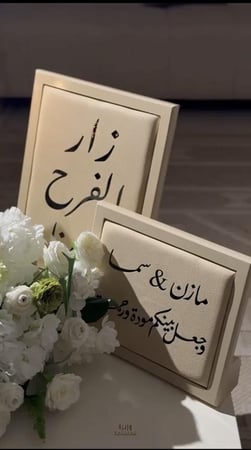 زار
الفرح
مازن & سما
وجعل بينكم مودة